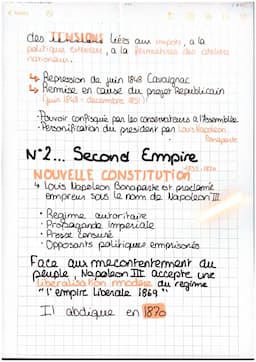 des TENSIONS liées aux impots, a la
politique exterieur, a la fermetures des ateliers
nationaux.
↳ Repression de juin 1848 Cavaignac
↳ Remise en cause du projet Republicain
(juin 1848 - decembre 1851)
-Pouvoir confisqué par les conservateurs a l'Assemblée
-Personification du president par Louis Napoleon
Bonaparte
N°2... Second Empire
1852-1870
NOUVELLE CONSTITUTION
↳ Louis Napoleon Bonaparte est proclamé
empreur sous le nom de Napoleon III
• Regime autoritaire
• Propagande imperiale
• Presse censuré
• Opposants politiques emprisonés
Face aux mecontentement du
peuple, Napoleon III accepte une
liberalisation modéré du regime
"l'empire liberale 1869"
Il abdique en 1870